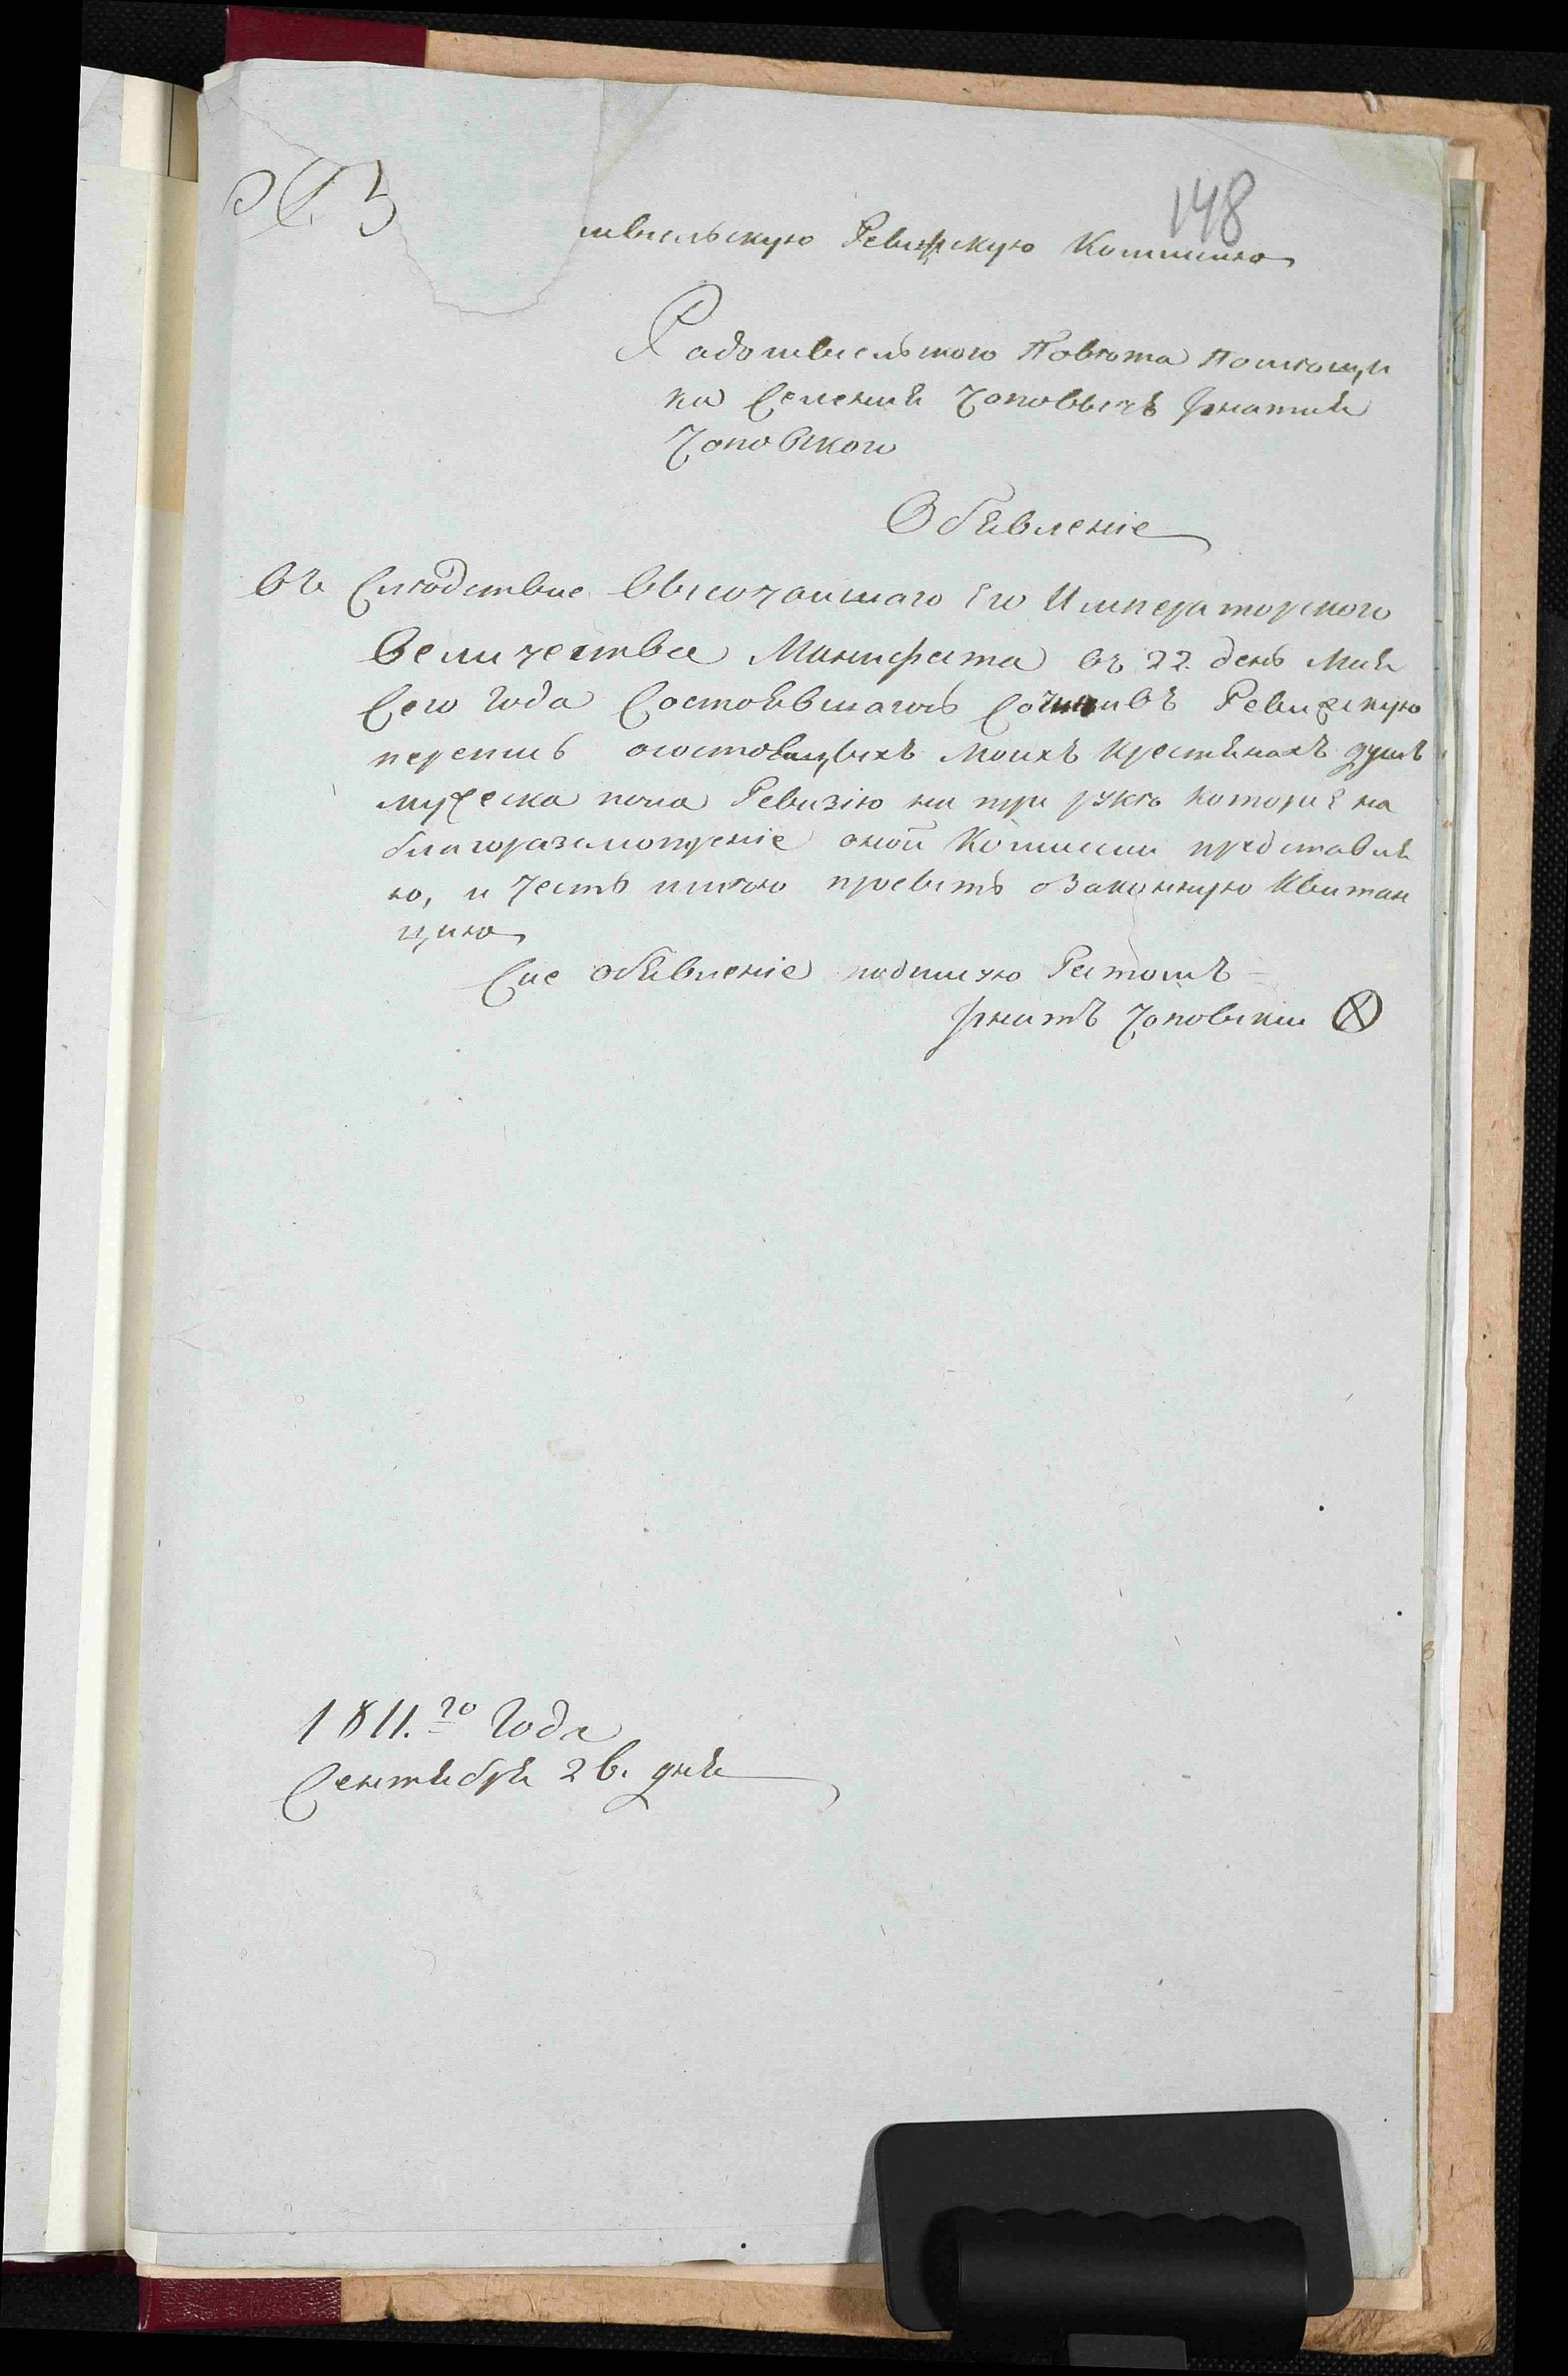 148
мысльскую Ревизскую Комисию
Радомысльского Повѣта Помѣщи
ка Селения Чоповычъ Игнатия
Чоповского
Обявленіе
въ Слѣдствие Высочаишаго Его Императорского
Величества Манифеста въ 22. день Мая
Сего Года Состоявшагось Сочинивъ Ревизскую
перепись осостоящыхъ моихъ крестянахъ душъ
мужеска пола Ревизію ни при
благоразсмотреніе оной Комиссии представля
ю, и Честь имѣю просить оЗаконную Квитан
цию
Сие обявленіе подписую
Игнатъ Чоповский
1811.го Года
Сентября 26. дня